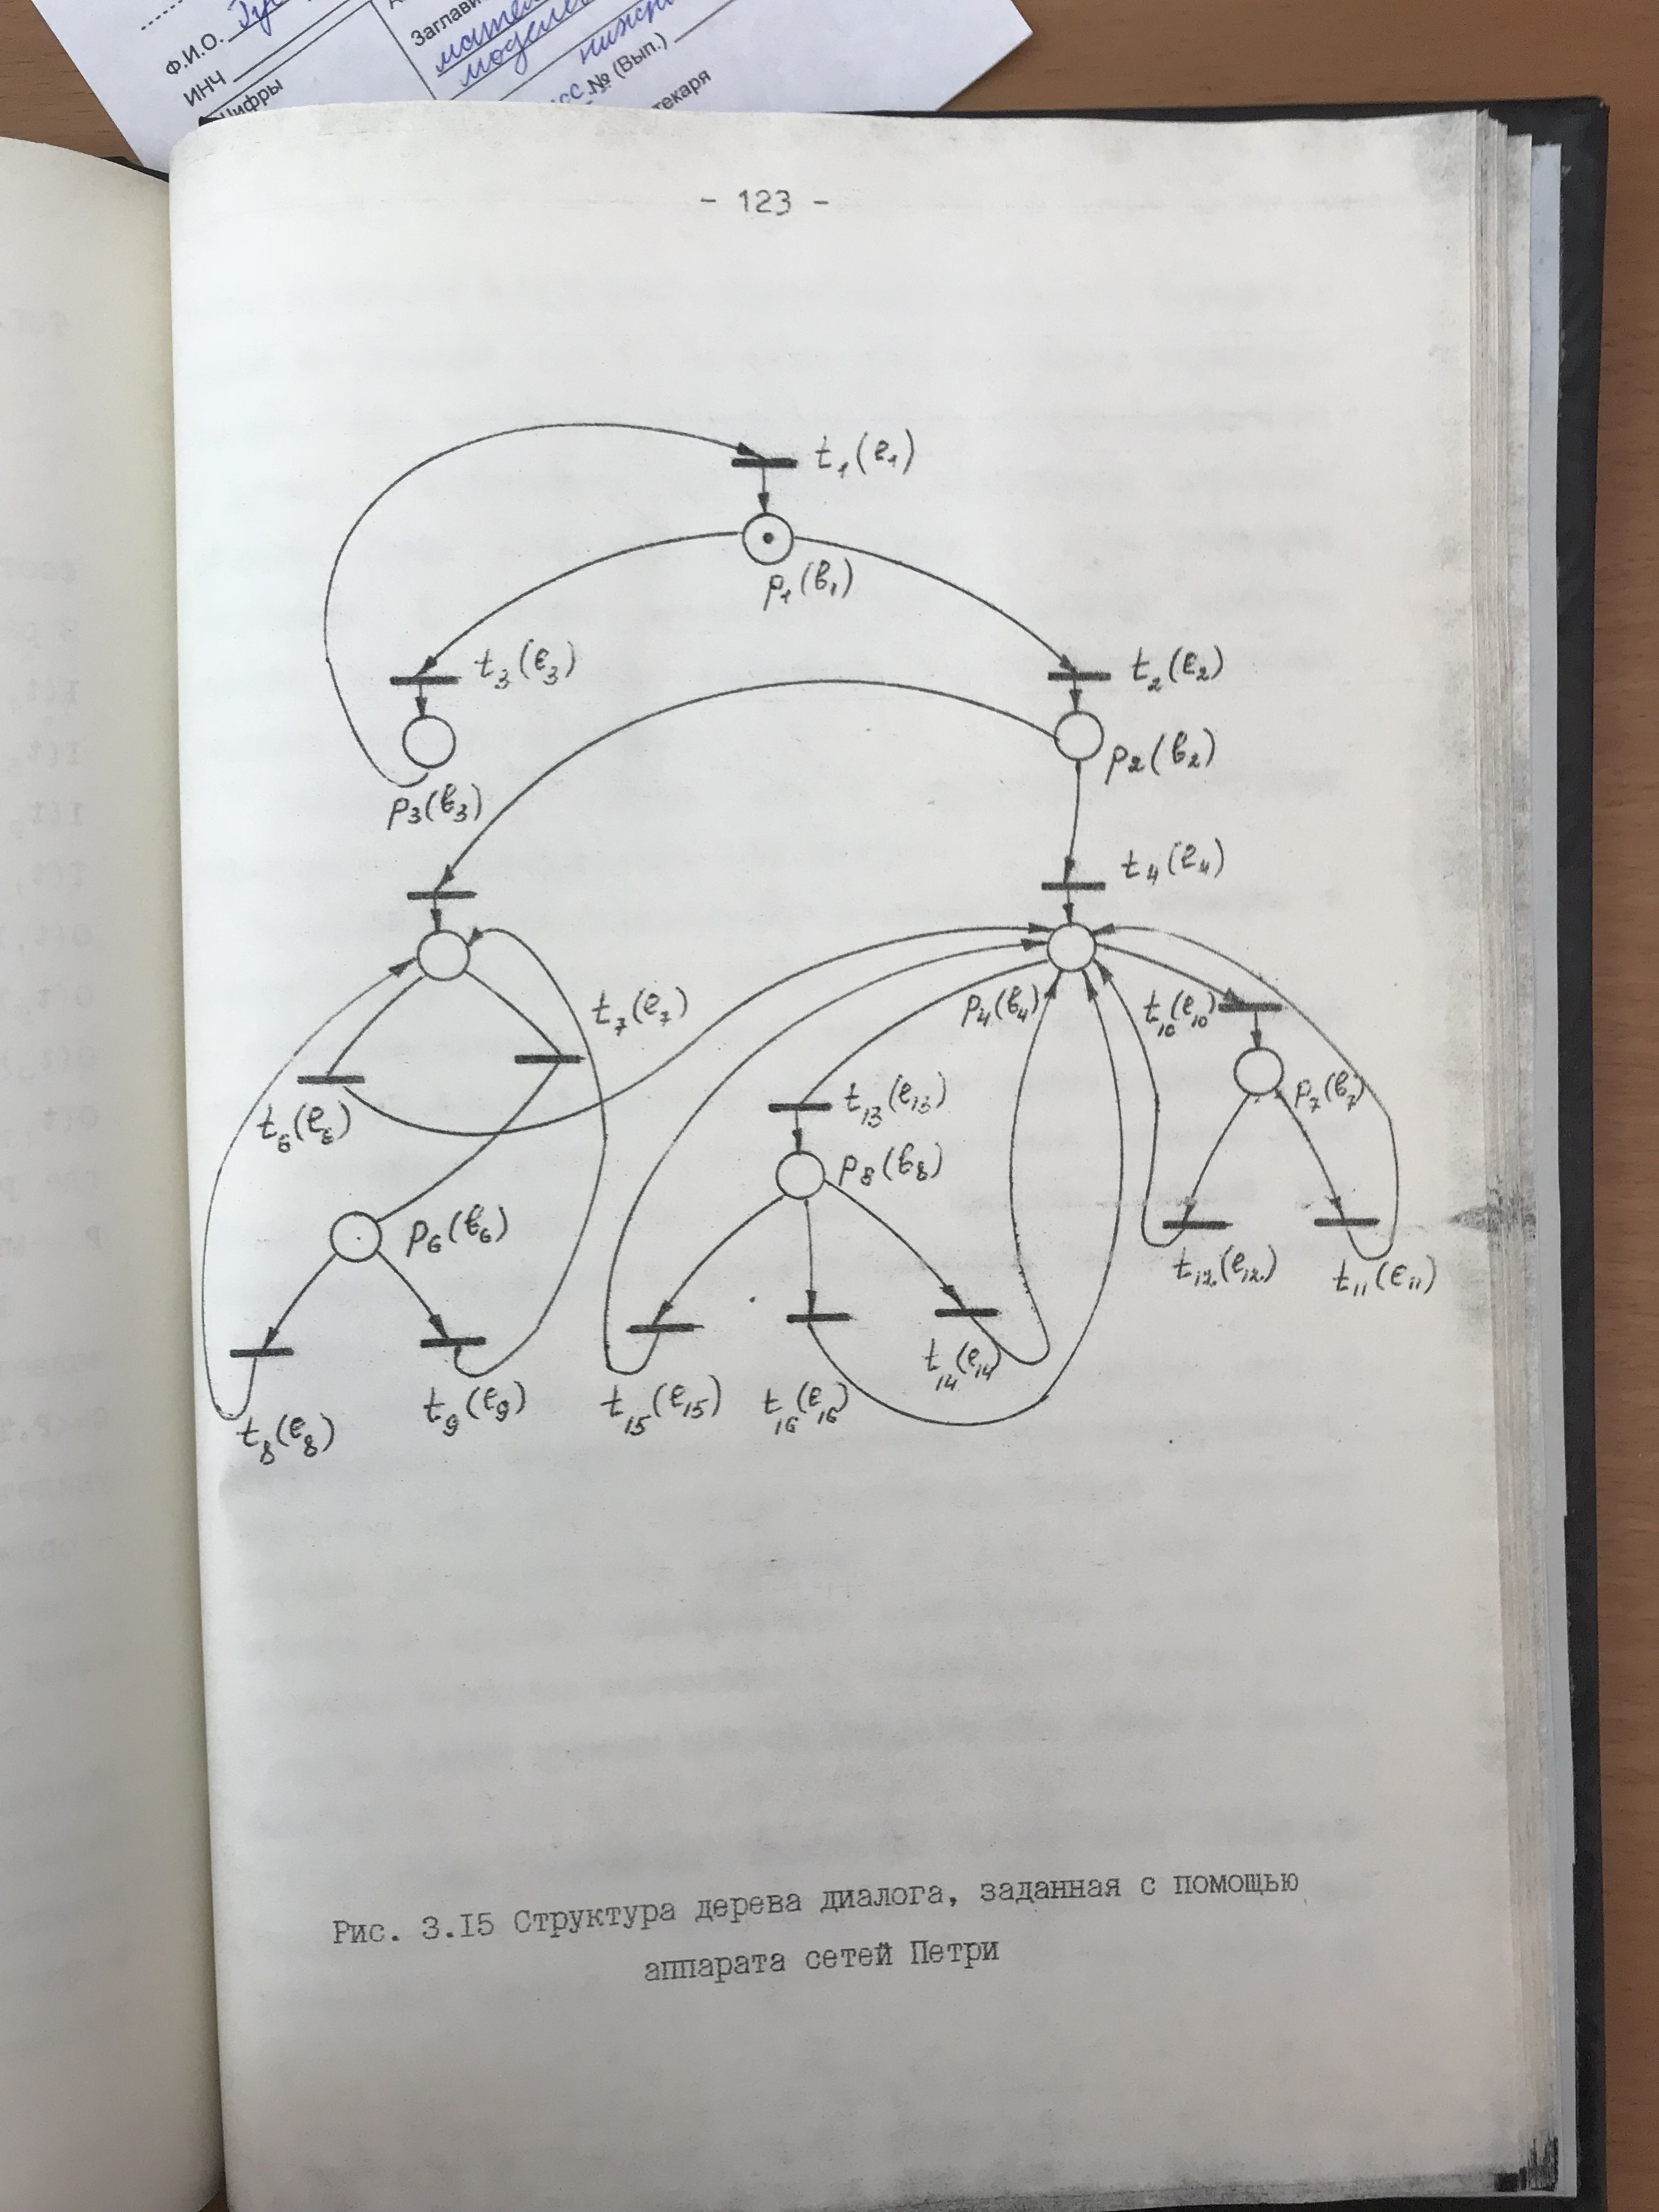 Ф.И.О.
ИНЧ
Цифры
№ (Вып.)
- 123 -
t₁(e₁)
p₁(b₁)
t₃(e₃)
t₂(e₂)
p₂(b₂)
p₃(b₃)
t₄(e₄)
t₇(e₇)
p₄(b₄)
t₁₀(e₁₀)
t₆(e₆)
t₁₃(e₁₃)
p₇(b₇)
p₈(b₈)
p₆(b₆)
t₁₂(e₁₂)
t₁₁(e₁₁)
t₁₄(e₁₄)
t₈(e₈)
t₉(e₉)
t₁₅(e₁₅)
t₁₆(e₁₆)
Рис. 3.I5 Структура дерева диалога, заданная с помощью
аппарата сетей Петри